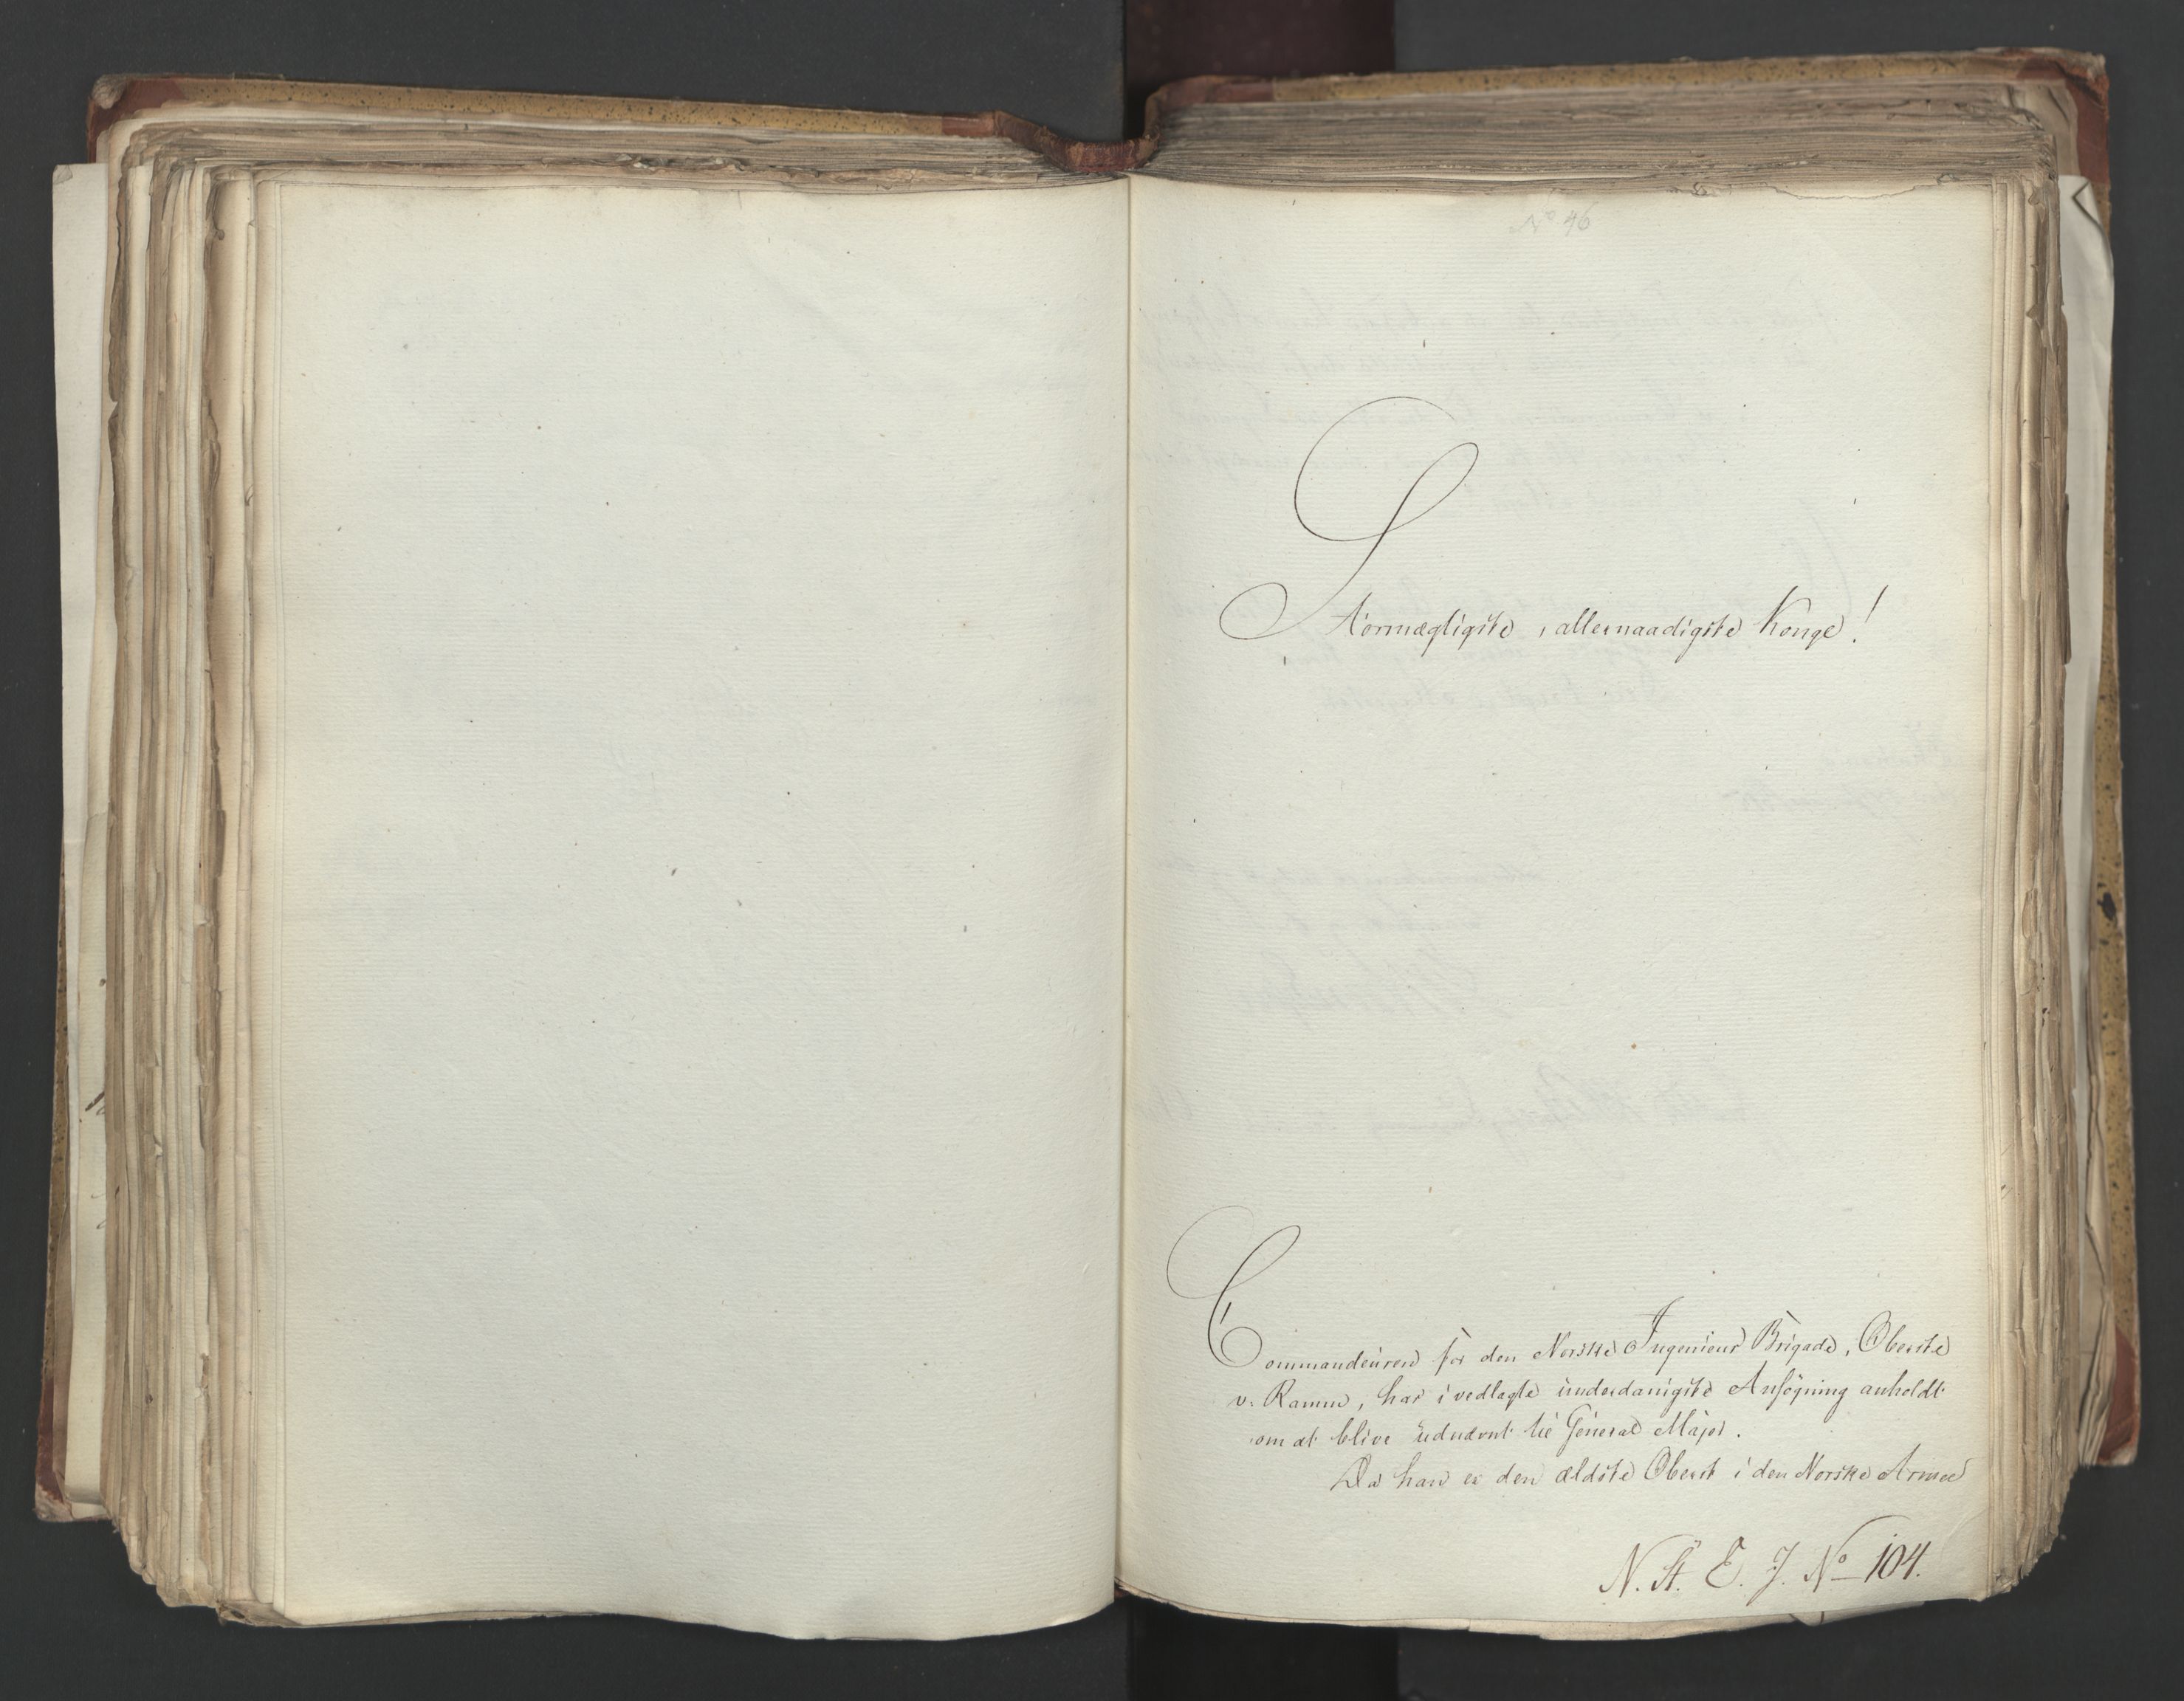 No 46
Stormægtigste, allernaadigste Konge!
Commandeuren for den Norske Ingenieur Brigade, Oberste
v: Ramm, har i vedlagte underdanigste Ansögning anholdt
om at blive udnævnt til General Major.
Da han er den ældste Oberst i den Norske Armee
N. St. E. J. No 104.